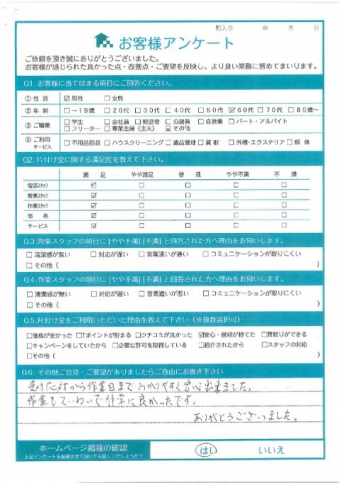 記入日 年 月 日
お客様アンケート
ご依頼を頂き誠にありがとうございました。
お客様が感じられた良かった点・改善点・ご要望を反映し、より良い業務に努めてまいります。
Q1. お客様に当てはまる項目にご回答ください。
①性 別 ☑男性 □女性
②年 齢 □~19歳 □20代 □30代 □40代 □50代 ☑60代 □70代 □80歳~
③ご職業 □学生 □会社員 □経営者 □公務員 □自営業 □パート・アルバイト
□フリーター □専業主婦(主夫) ☑その他
④ご利用サービス □不用品回収 □ハウスクリーニング □遺品整理 □買取 □外構・エクステリア □解体
Q2. 片付け堂に関する満足度を教えて下さい。
満足 やや満足 普通 やや不満 不満
電話スタッフ ☑ □ □ □ □
営業スタッフ ☑ □ □ □ □
作業スタッフ ☑ □ □ □ □
価格 ☑ □ □ □ □
サービス ☑ □ □ □ □
Q3. 営業スタッフの項目に[やや不満][不満]と回答された方へ理由をお伺いします。
□清潔感が無い □対応が遅い □言葉遣いが悪い □コミュニケーションが取りにくい
□その他( )
Q4. 作業スタッフの項目に[やや不満][不満]と回答された方へ理由をお伺いします。
□清潔感が無い □対応が遅い □言葉遣いが悪い □コミュニケーションが取りにくい
□その他( )
Q5. 片付け堂をご利用いただいた理由を教えて下さい(※複数選択可)
□価格が安かった □Tポイントが貯まる □クチコミが良かった ☑安心・信頼が持てた □買取りができる
□キャンペーンをしていたから □必要な許可を取得している □紹介されたから □スタッフの対応
□その他( )
Q6. その他ご意見・ご要望がありましたらご自由にお書き下さい
から作業日までわかりやすく安心出来ました。
作業もていねいで非常に良かったです。
ありがとうございました。
ホームページ掲載の確認
はい いいえ